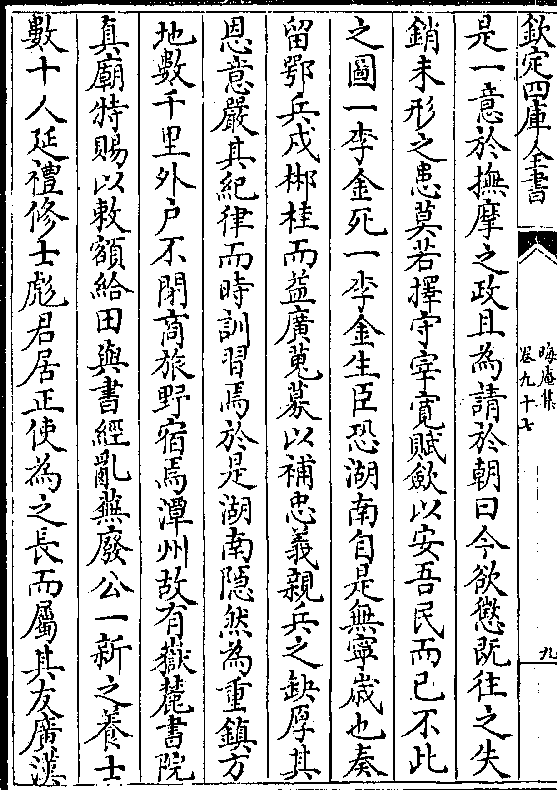 欽定四庫全書
晦庵集
卷九十七
九
是一意於撫摩之政且為請於朝曰今欲懲既往之失
銷未形之患莫若擇守宰寛賦歛以安吾民而已不此
之圖一李金死一李金生臣恐湖南自是無寧歲也奏
留鄂兵戍郴桂而益廣蒐募以補忠義親兵之缺厚其
恩意嚴其紀律而時訓習焉於是湖南隠然為重鎮方
地數千里外户不閉商旅野宿焉潭州故有嶽麓書院
真廟特賜以敕額給田與書經亂蕪廢公一新之養士
數十人延禮修士彪君居正使為之長而屬其友廣漢